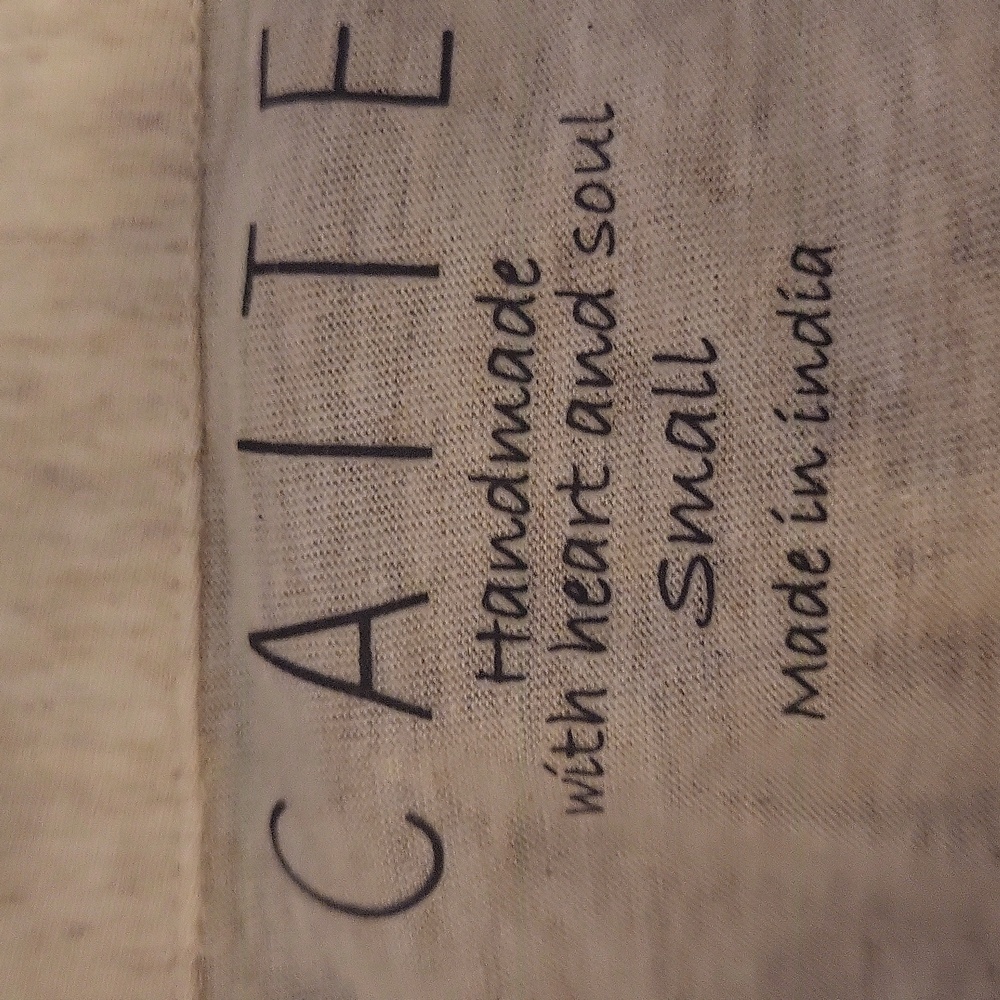 CAITE
Handmade
with heart and soul
Small
Made in india